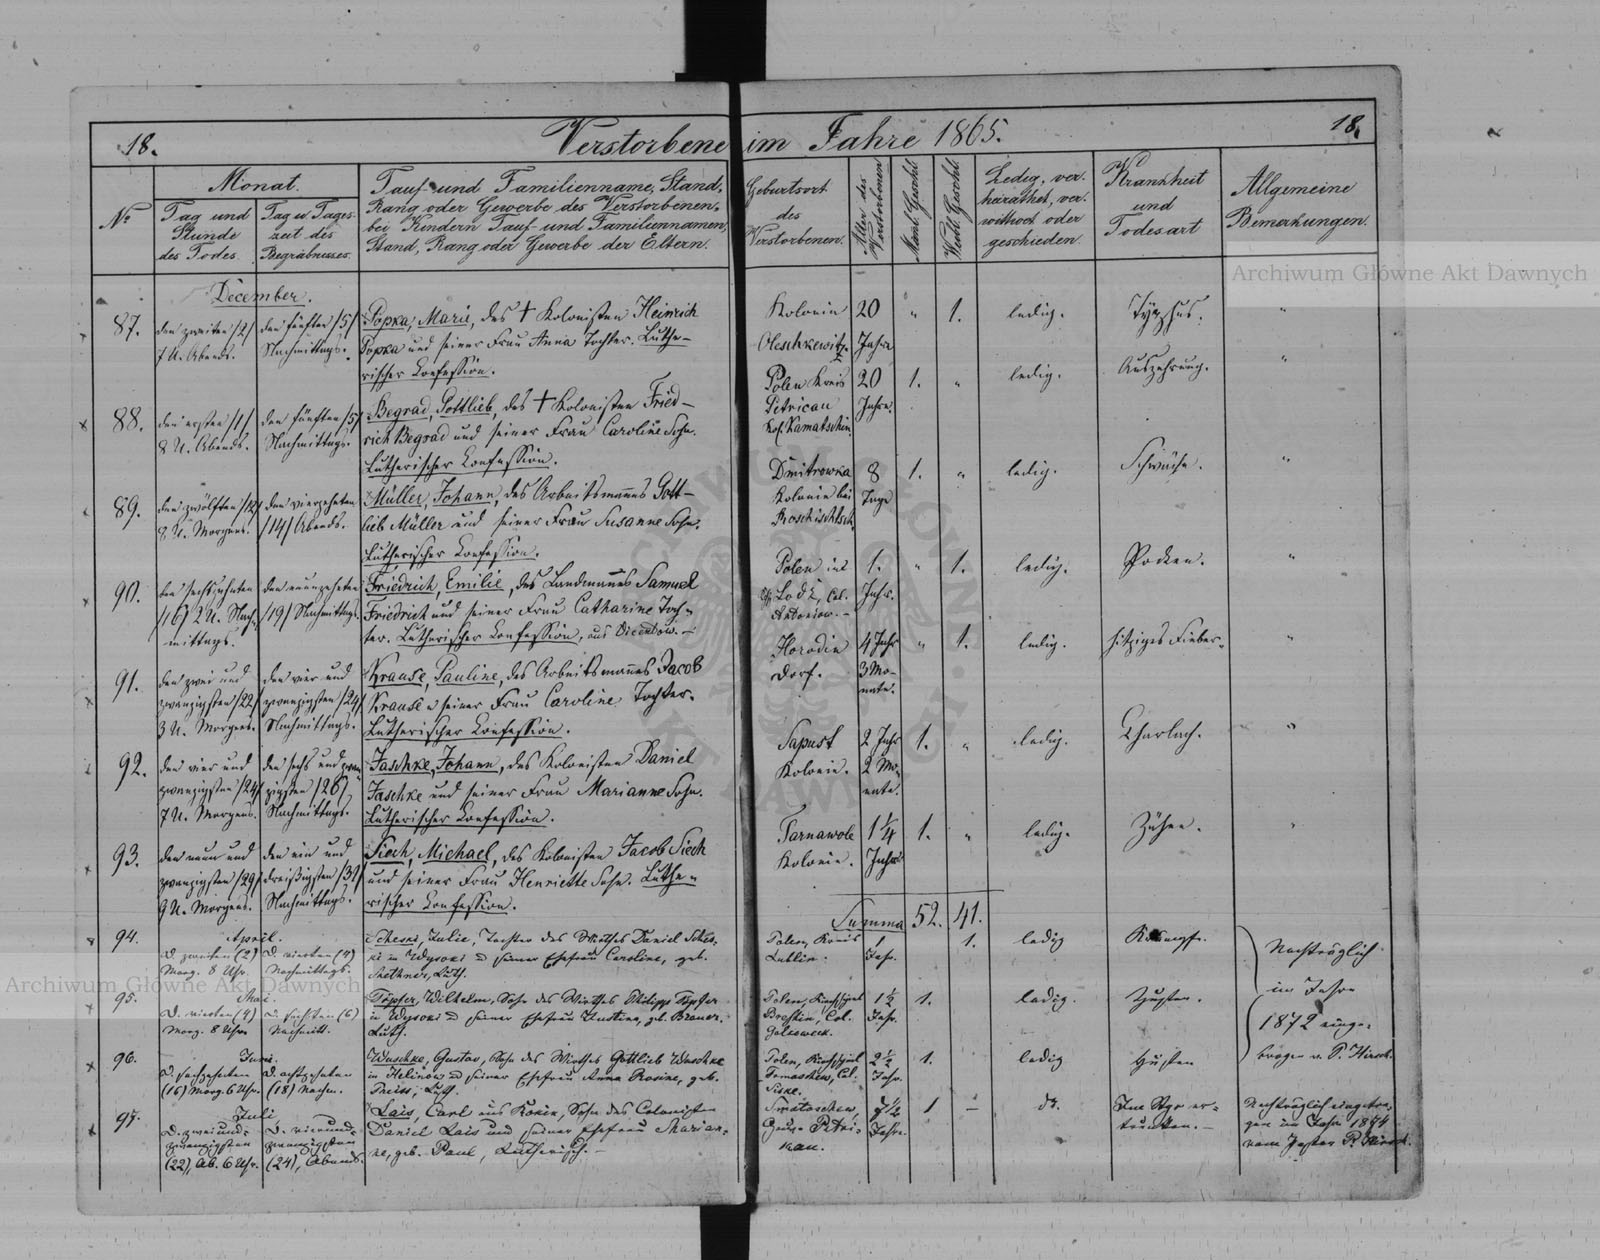 18.
Verstorbene im Jahre 1865.
18.
Nº
Monat.
Tag und
Stunde
des Todes.
Tag u. Tages-
zeit des
Begräbnisses.
Tauf- und Familienname, Stand,
Rang oder Gewerbe des Verstorbenen,
bei Kindern Tauf- und Familiennamen,
Stand, Rang oder Gewerbe der Eltern.
Geburtsort
des
Verstorbenen.
Alter des
Verstorbenen
Männl. Geschl.
Weibl. Geschl.
Ledig, ver-
heirathet, ver-
wittwet oder
geschieden.
Krankheit
und
Todesart
Allgemeine
Bemerkungen.
December.
87.
den zweiten /2/
7 U. Abends.
den fünften /5/
Nachmittags.
Popka, Marie, des † Kolonisten Heinrich
Popka und seiner Frau Anna Tochter. Luthe-
rischer Confession.
Kolonie
Oleschkewitz
20
Jahre
" 1.
ledig.
Typhus.
"
88.
den ersten /1/
8 U. Abends.
den fünften /5/
Nachmittags.
Begrad, Gottlieb, des † Kolonisten Fried-
rich Begrad und seiner Frau Caroline Sohn.
Lutherischer Confession.
Polen Kreis
Petricau
Kol. Kamatschin
20
Jahre.
1. "
ledig.
Auszehrung.
"
89.
den zwölften /12/
8 U. Morgens.
den vierzehnten
/14/ Abends.
Müller, Johann, des Arbeitsmannes Gott-
lieb Müller und seiner Frau Susanne Sohn.
Lutherischer Confession.
Dmitrowka
Kolonie bei
Roschischtsch.
8
Tage
1. "
ledig.
Schwäche.
"
90.
den sechzehnten
/16/ 2 U. Nach-
mittags.
den neunzehnten
/19/ Nachmittags.
Friedrich, Emilie, des Landmannes Samuel
Friedrich und seiner Frau Catharine Toch-
ter. Lutherischer Confession, aus
Polen
Lodz, Col.
Antoniow.
1.
Jahr.
" 1.
ledig.
Pocken.
"
91.
den zwei und
zwanzigsten /22/
3 U. Morgens.
den vier und
zwanzigsten /24/
Nachmittags.
Krause, Pauline, des Arbeitsmannes Jacob
Krause u seiner Frau Caroline Tochter.
Lutherischer Confession.
Horodin
Dorf.
4 Jahr
3 Mo-
nate.
" 1.
ledig.
hitziges Fieber.
"
92.
den vier und
zwanzigsten /24/
7 U. Morgens.
den sechs und zwan-
zigsten /26/
Nachmittags.
Jaschke, Johann, des Kolonisten Daniel
Jaschke und seiner Frau Marianne Sohn.
Lutherischer Confession.
Sapust
Kolonie.
2 Jahr
2 Mo-
nate.
1. "
ledig.
Scharlach.
"
93.
den neun und
zwanzigsten /29/
9 U. Morgens.
den ein und
dreißigsten /31/
Nachmittags.
Siech, Michael, des Kolonisten Jacob Siech
und seiner Frau Henriette Sohn. Luthe-
rischer Confession.
Tarnawole
Kolonie.
1 1/4
Jahr
1. "
ledig.
Zähne.
"
Summa 52. 41.
94.
April.
D. zweiten (2)
Morg. 8 Uhr.
D. vierten (4)
Nachmittags.
Scheski, Julie, Tochter des Wirthes Daniel Sches-
ki in Wysoki u seiner Ehefrau Caroline, geb.
Luth.
Polen, Kreis
Lublin.
1
Jahr.
1.
ledig
Krampf.
Nachträglich
im Jahre
1872 einge-
tragen v. P. Hirsch.
95.
Mai.
D. vierten (4)
Morg. 8 Uhr
D. sechsten (6)
Nachmitt.
Töpfer, Wilhelm, Sohn des Wirthes Philipp Töpfer
in Wysoki u seiner Ehefrau Justine, geb. Brauer.
Luth.
Polen, Kirchspiel
Col.
1 1/2
Jahr.
1.
ledig.
Husten.
96.
Juni.
D. sechzehnten
(16) Morg. 6 Uhr.
D. achtzehnten
(18) Nachm.
Waschke, Gustav, Sohn des Wirthes Gottlieb Waschke
in Helinow u seiner Ehefrau Anna Rosine, geb.
Theiss, Luth.
Polen, Kirchspiel
Tomaschew, Col.
2 1/2
Jahr.
1.
ledig
Husten
97.
Juli
D. zweiund-
zwanzigsten
(22), Ab. 6 Uhr.
D. vierund-
zwanzigsten
(24), Abends.
Lais, Carl aus Sohn des Colonisten
Daniel Lais und seiner Ehefrau Marian-
ne, geb. Paul, Lutherisch. —
Gouv. Petri-
kau.
7 1/2
Jahre
1 —
do.
Im Styr er-
trunken. —
Nachträglich eingetra-
gen im Jahre 1874
vom Pastor P. Hirsch.
Archiwum Główne Akt Dawnych
Archiwum Główne Akt Dawnych